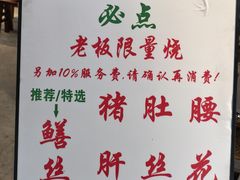 必点
老板限量烧
另加10%服务费,请确认再消费!
推荐/特选
鳝丝
猪肝
肚丝
腰花